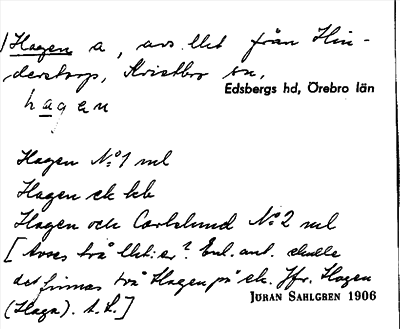 Hagen a, avs. lht från Hin-
derstorp, Kvistbro sn,
Edsbergs hd, Örebro län
hagen
Hagen No 1 ml
Hagen ek kb
Hagen och Carlslund No 2 ml
[Avses två lht:er? Enl. ant. skulle
det finnas två Hagen på ek. Jfr. Hagen
(Haga). I. L.]
JÖRAN SAHLGREN 1906